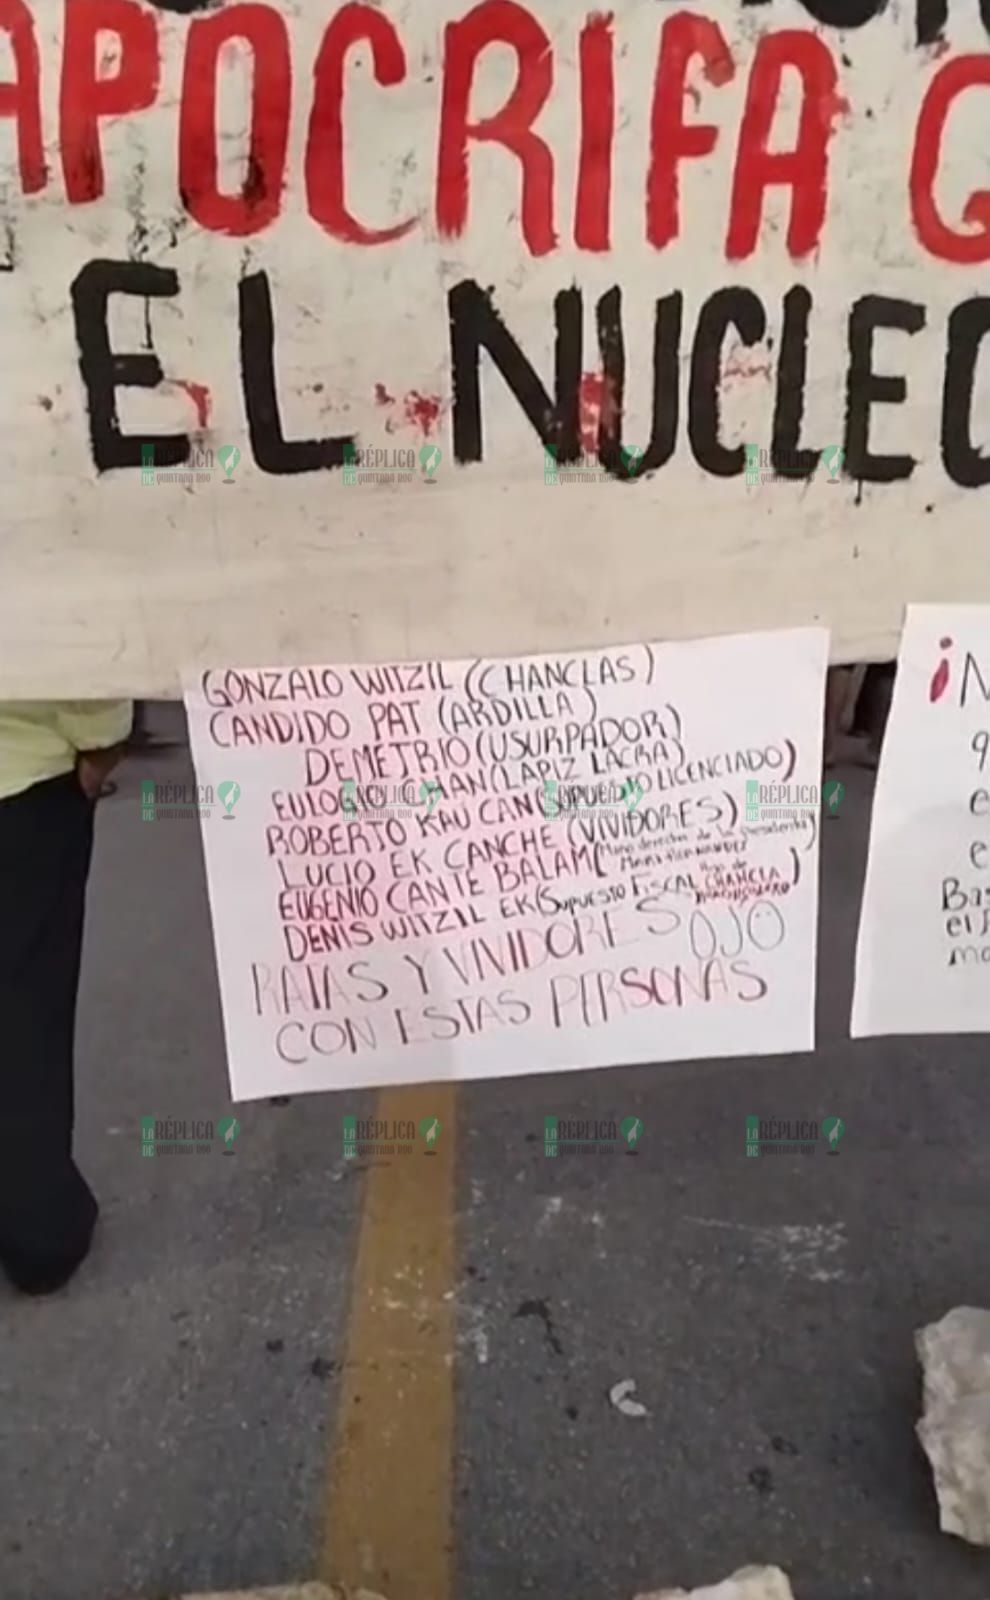 APOCRIFA G
EL NUCLEO
GONZALO WITZIL (CHANCLAS)
CANDIDO PAT (ARDILLA)
DEMETRIO (USURPADOR)
EULOGIO CHAN (LAPIZ LACRA)
ROBERTO KAU CAN (SUPUESTO LICENCIADO)
LUCIO EK CANCHE (VIVIDORES)
EUGENIO CANTE BALAM (Mano derecha de la Presidenta
DENIS WITZIL EK (SUPUESTO FISCAL Hijo de CHANCLA)
RATAS Y VIVIDORES OJO
CON ESTAS PERSONAS
¡N
q
e
e
Bas
el
mo
LA RÉPLICA DE QUINTANA ROO